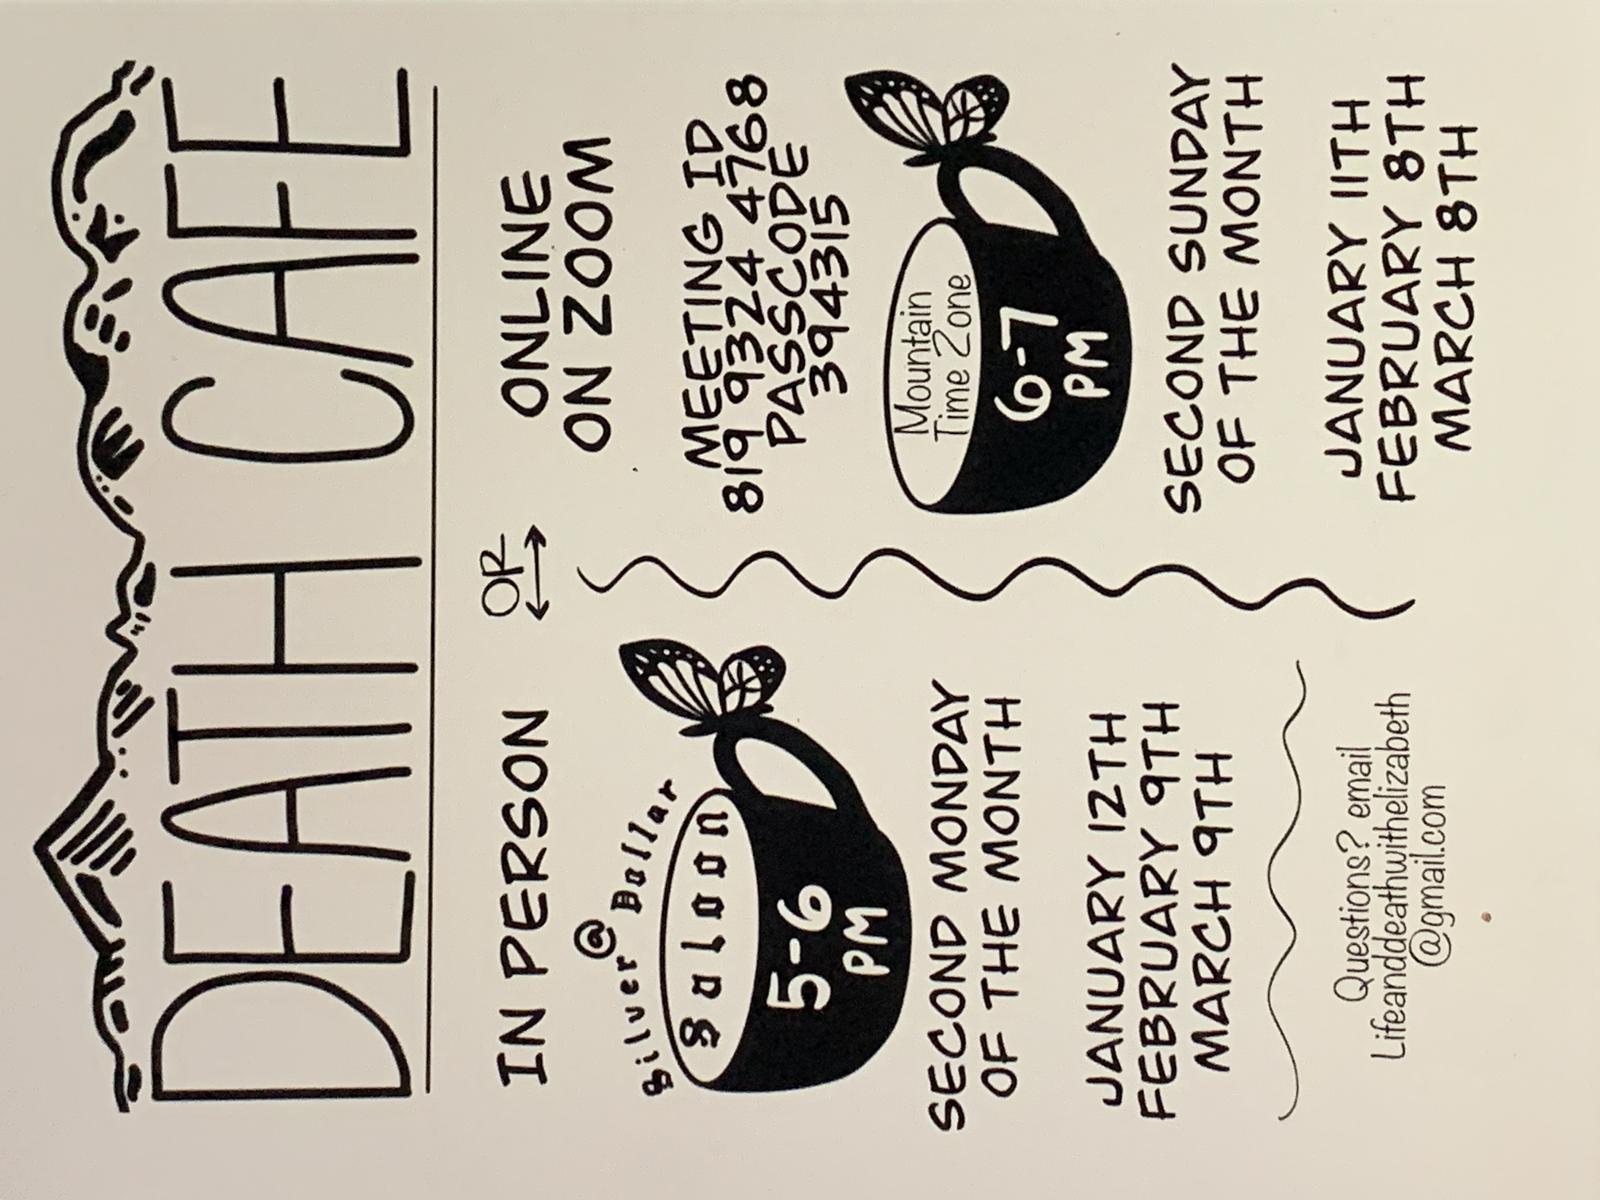 DEATH CAFE
OR
IN PERSON
@
Silver Dollar
Saloon
5-6
PM
SECOND MONDAY
OF THE MONTH
JANUARY 12TH
FEBRUARY 9TH
MARCH 9TH
Questions? email
Lifeanddeathwithelizabeth
@gmail.com
ONLINE
ON ZOOM
MEETING ID
819 9324 4768
PASSCODE
394315
Mountain
Time Zone
6-7
PM
SECOND SUNDAY
OF THE MONTH
JANUARY 11TH
FEBRUARY 8TH
MARCH 8TH